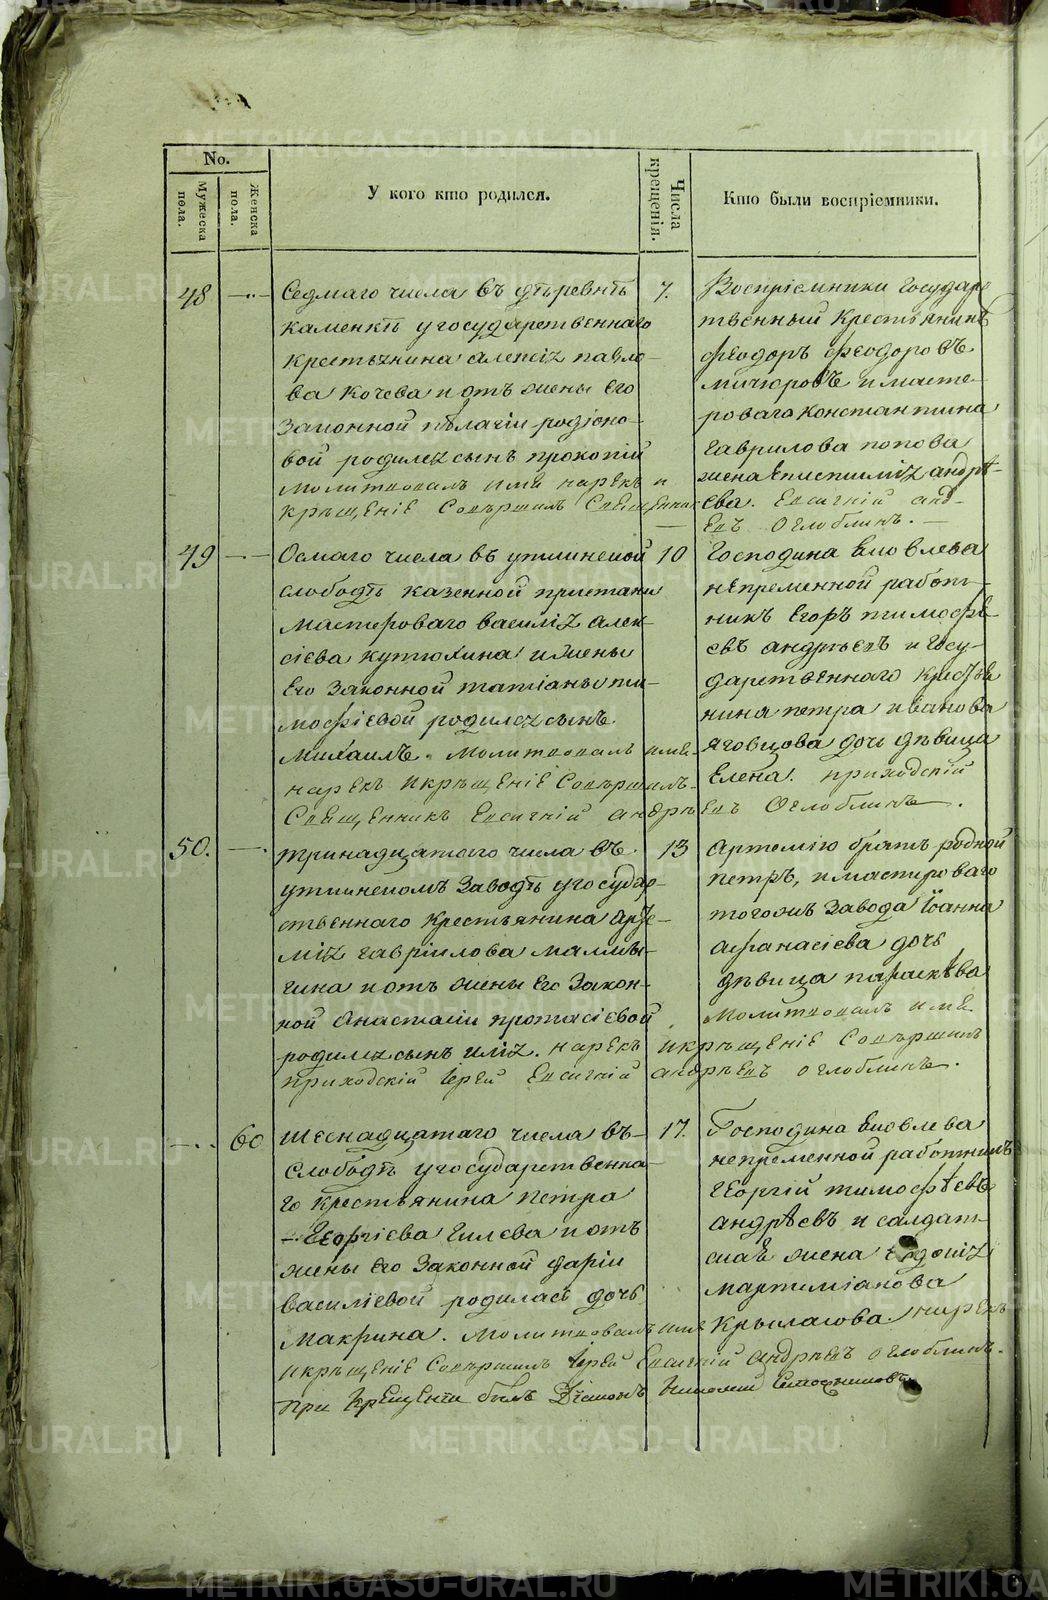 No.
Мужеска пола.
Женска пола.
У кого кто родился.
Числа крещенія.
Кто были воспріемники.
48
Седмаго числа въ деревнѣ
каменкѣ у государственнаго
крестьянина алексія павло-
ва Кочева и отъ жены Его
Законной родіоно-
вой родился сынъ прокопій
молитвовалъ имя нарекъ и
крѣщеніе Совѣршилъ Свящѣнник
7.
Воспріемники Государс
твенный Крестьянинъ
феодоръ феодоровъ
мичюровъ и масте-
роваго константина
гаврилова попова
жена Епистимія андрѣ-
ева. Евсигній анд-
Евъ Оглоблинъ.
49
Осмаго числа въ уткинской
слободѣ казенной пристани
мастероваго василія алек-
сіева кутюхина и жены
Его Законной татіаны ти-
мофіевой родился сынъ
михаилъ. молитвовалъ имя
нарекъ и крѣщеніе Совѣршилъ
Свящѣнникъ Евсигній андрѣевъ Оглоблинъ.
10
Господина Яковлева
непременной работ-
никъ Егоръ тимофѣ-
евъ андрѣевъ и Госу-
дарственнаго Крестья
нина петра иванова
яговцова дочь дѣвица
Елена. приходскій
50.
тринадцатаго числа въ
уткинскомъ Заводѣ у государ-
ственнаго Крестьянина Арте-
мія гавріилова малы-
гина и отъ жены Его Закон-
ной Анастасіи протасіевой
родился сынъ илія. нарекъ и крѣщеніе Совѣршилъ
приходскій Іерей Евсигній андрѣевъ оглоблинъ.
13
Артемію братъ родной
петръ, и мастероваго
тогожъ Завода Іоанна
афанасіева дочь
дѣвица параскѣва
молитвовалъ имя
60
шеснадцатаго числа въ
Слободѣ у государственна-
го крестьянина петра
Георгіева Гилева и отъ
жены Его Законной даріи
василіевой родилась дочь
макрина. молитвовалъ имя
и крѣщеніе Совѣршилъ Іерей Евсигній андрѣевъ оглоблинъ.
при Крещеніи былъ Діаконъ Николай
17.
Господина Яковлева
непременной работникъ
Георгій тимофѣевъ
андрѣевъ и салдат-
ская жена
мартиміанова
Крыласова. нарекъ
METRIKI.GASO-URAL.RU